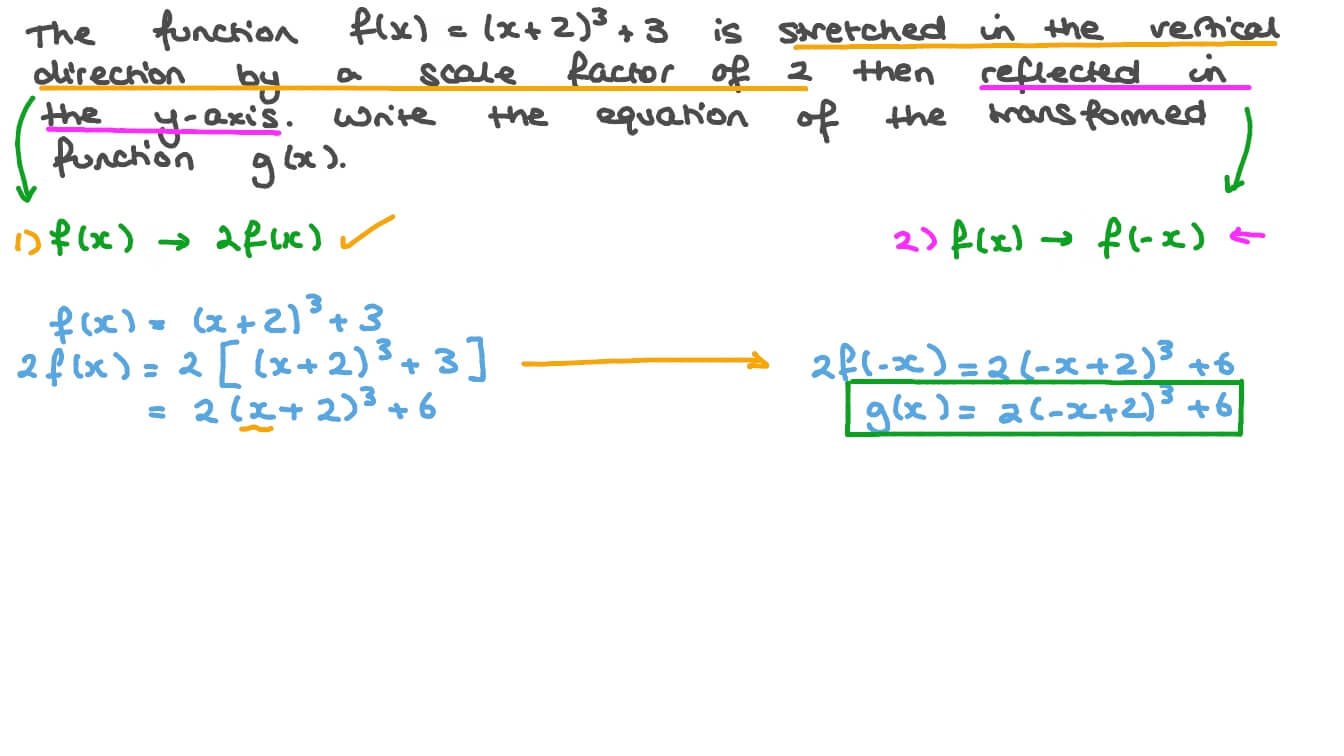 The function f(x) = (x+2)³ + 3 is stretched in the vertical
direction by a scale factor of 2 then reflected in
the y-axis. Write the equation of the transformed
function g(x).
1) f(x) → 2f(x) ✓
2) f(x) → f(-x) ←
f(x) = (x+2)³ + 3
2f(x) = 2[(x+2)³ + 3]
= 2(x+2)³ + 6
2f(-x) = 2(-x+2)³ + 6
g(x) = 2(-x+2)³ + 6